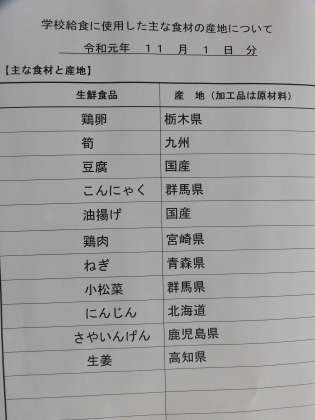 学校給食に使用した主な食材の産地について
令和元年 11 月 1 日 分
【主な食材と産地】
生鮮食品 産 地（加工品は原材料）
鶏卵 栃木県
筍 九州
豆腐 国産
こんにゃく 群馬県
油揚げ 国産
鶏肉 宮崎県
ねぎ 青森県
小松菜 群馬県
にんじん 北海道
さやいんげん 鹿児島県
生姜 高知県